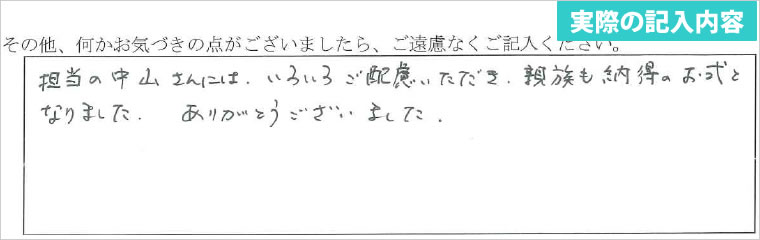 実際の記入内容
その他、何かお気づきの点がございましたら、ご遠慮なくご記入ください。
担当の中山さんには、いろいろご配慮いただき、親族も納得のお式と
なりました。 ありがとうございました。